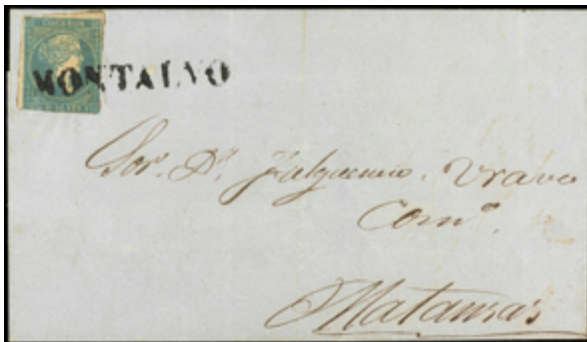 CORREOS
MONTALVO
Sor. Dn. Fulgencio. Vravo
Como.
Matanzas